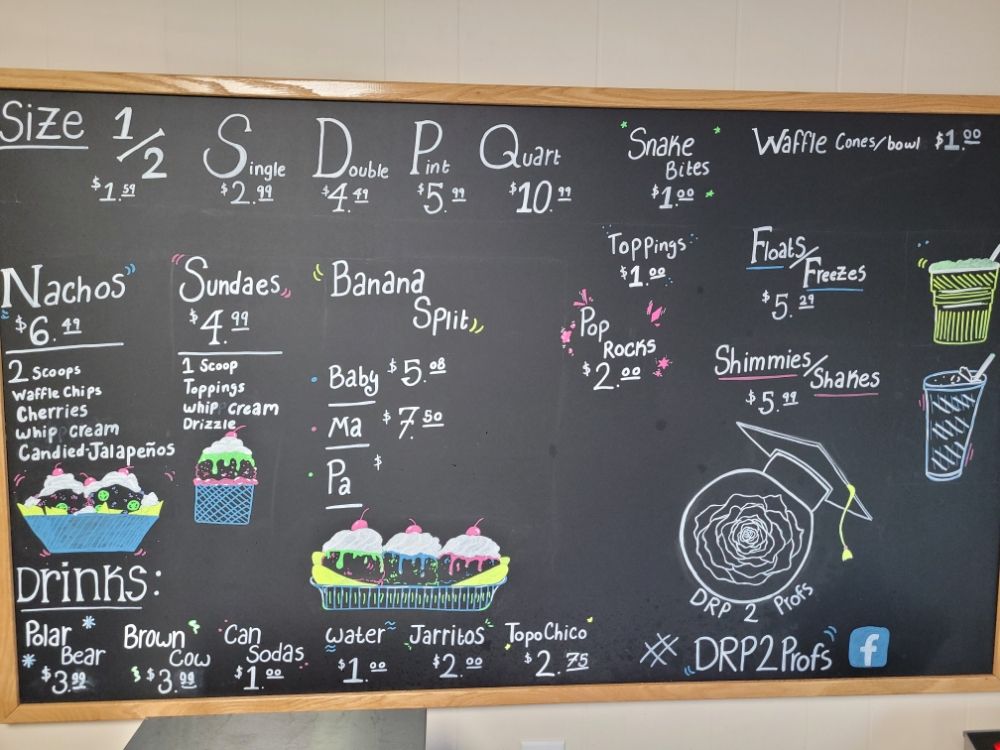 Size
1/2
$1.59
Single
$2.99
Double
$4.49
Pint
$5.99
Quart
$10.99
Snake
Bites
$1.00
Waffle Cones/bowl $1.00
Nachos
$6.49
2 Scoops
Waffle Chips
Cherries
Whip cream
Candied-Jalapeños
Sundaes
$4.99
1 Scoop
Toppings
Whip cream
Drizzle
Banana
Split
Baby $5.08
Ma $7.50
Pa $
Toppings
$1.00
Pop
Rocks
$2.00
Floats/
Freezes
$5.29
Shimmies/
Shakes
$5.99
DRP 2 Profs
Drinks:
Polar
Bear
$3.99
Brown
Cow
$3.99
Can
Sodas
$1.00
Water
$1.00
Jarritos
$2.00
TopoChico
$2.75
# DRP2Profs f